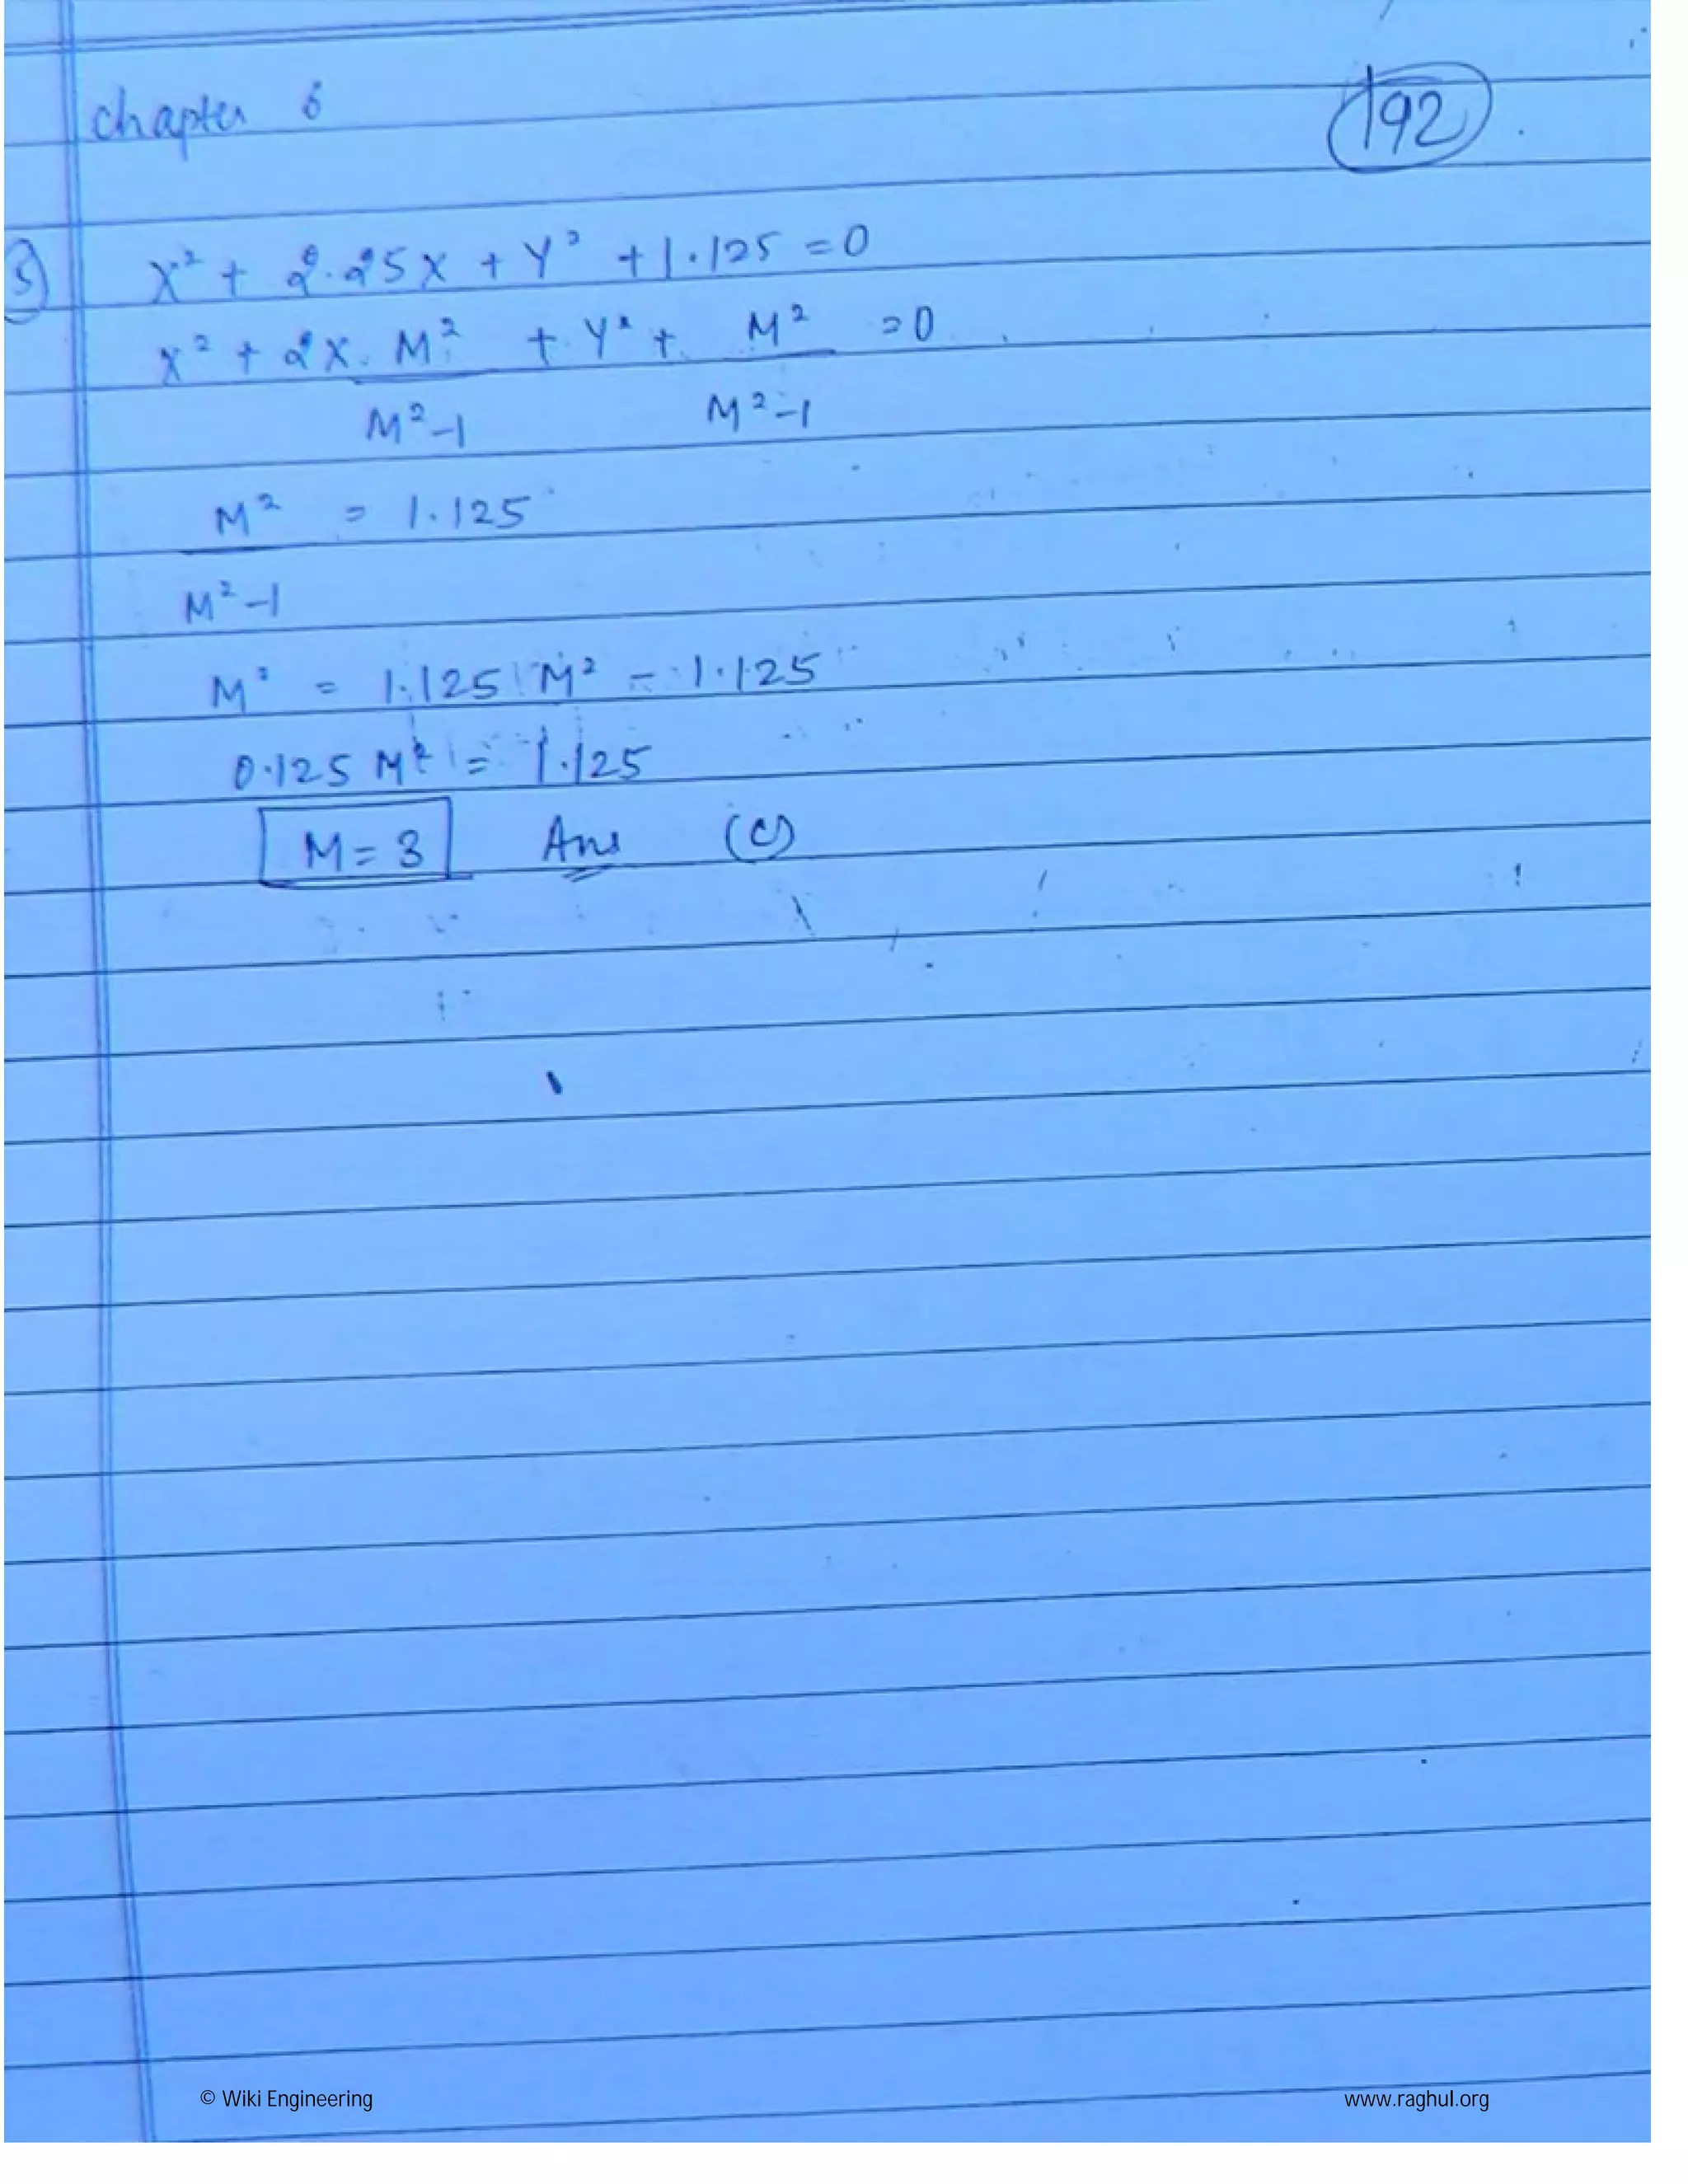 chapter 6
192
5) X² + 2.25X + Y² + 1.125 = 0
X² + 2X. M² + Y² + M² = 0
M²-1 M²-1
M² = 1.125
M²-1
M² = 1.125 M² - 1.125
0.125 M² = 1.125
M = 3 Ans (C)
© Wiki Engineering www.raghul.org